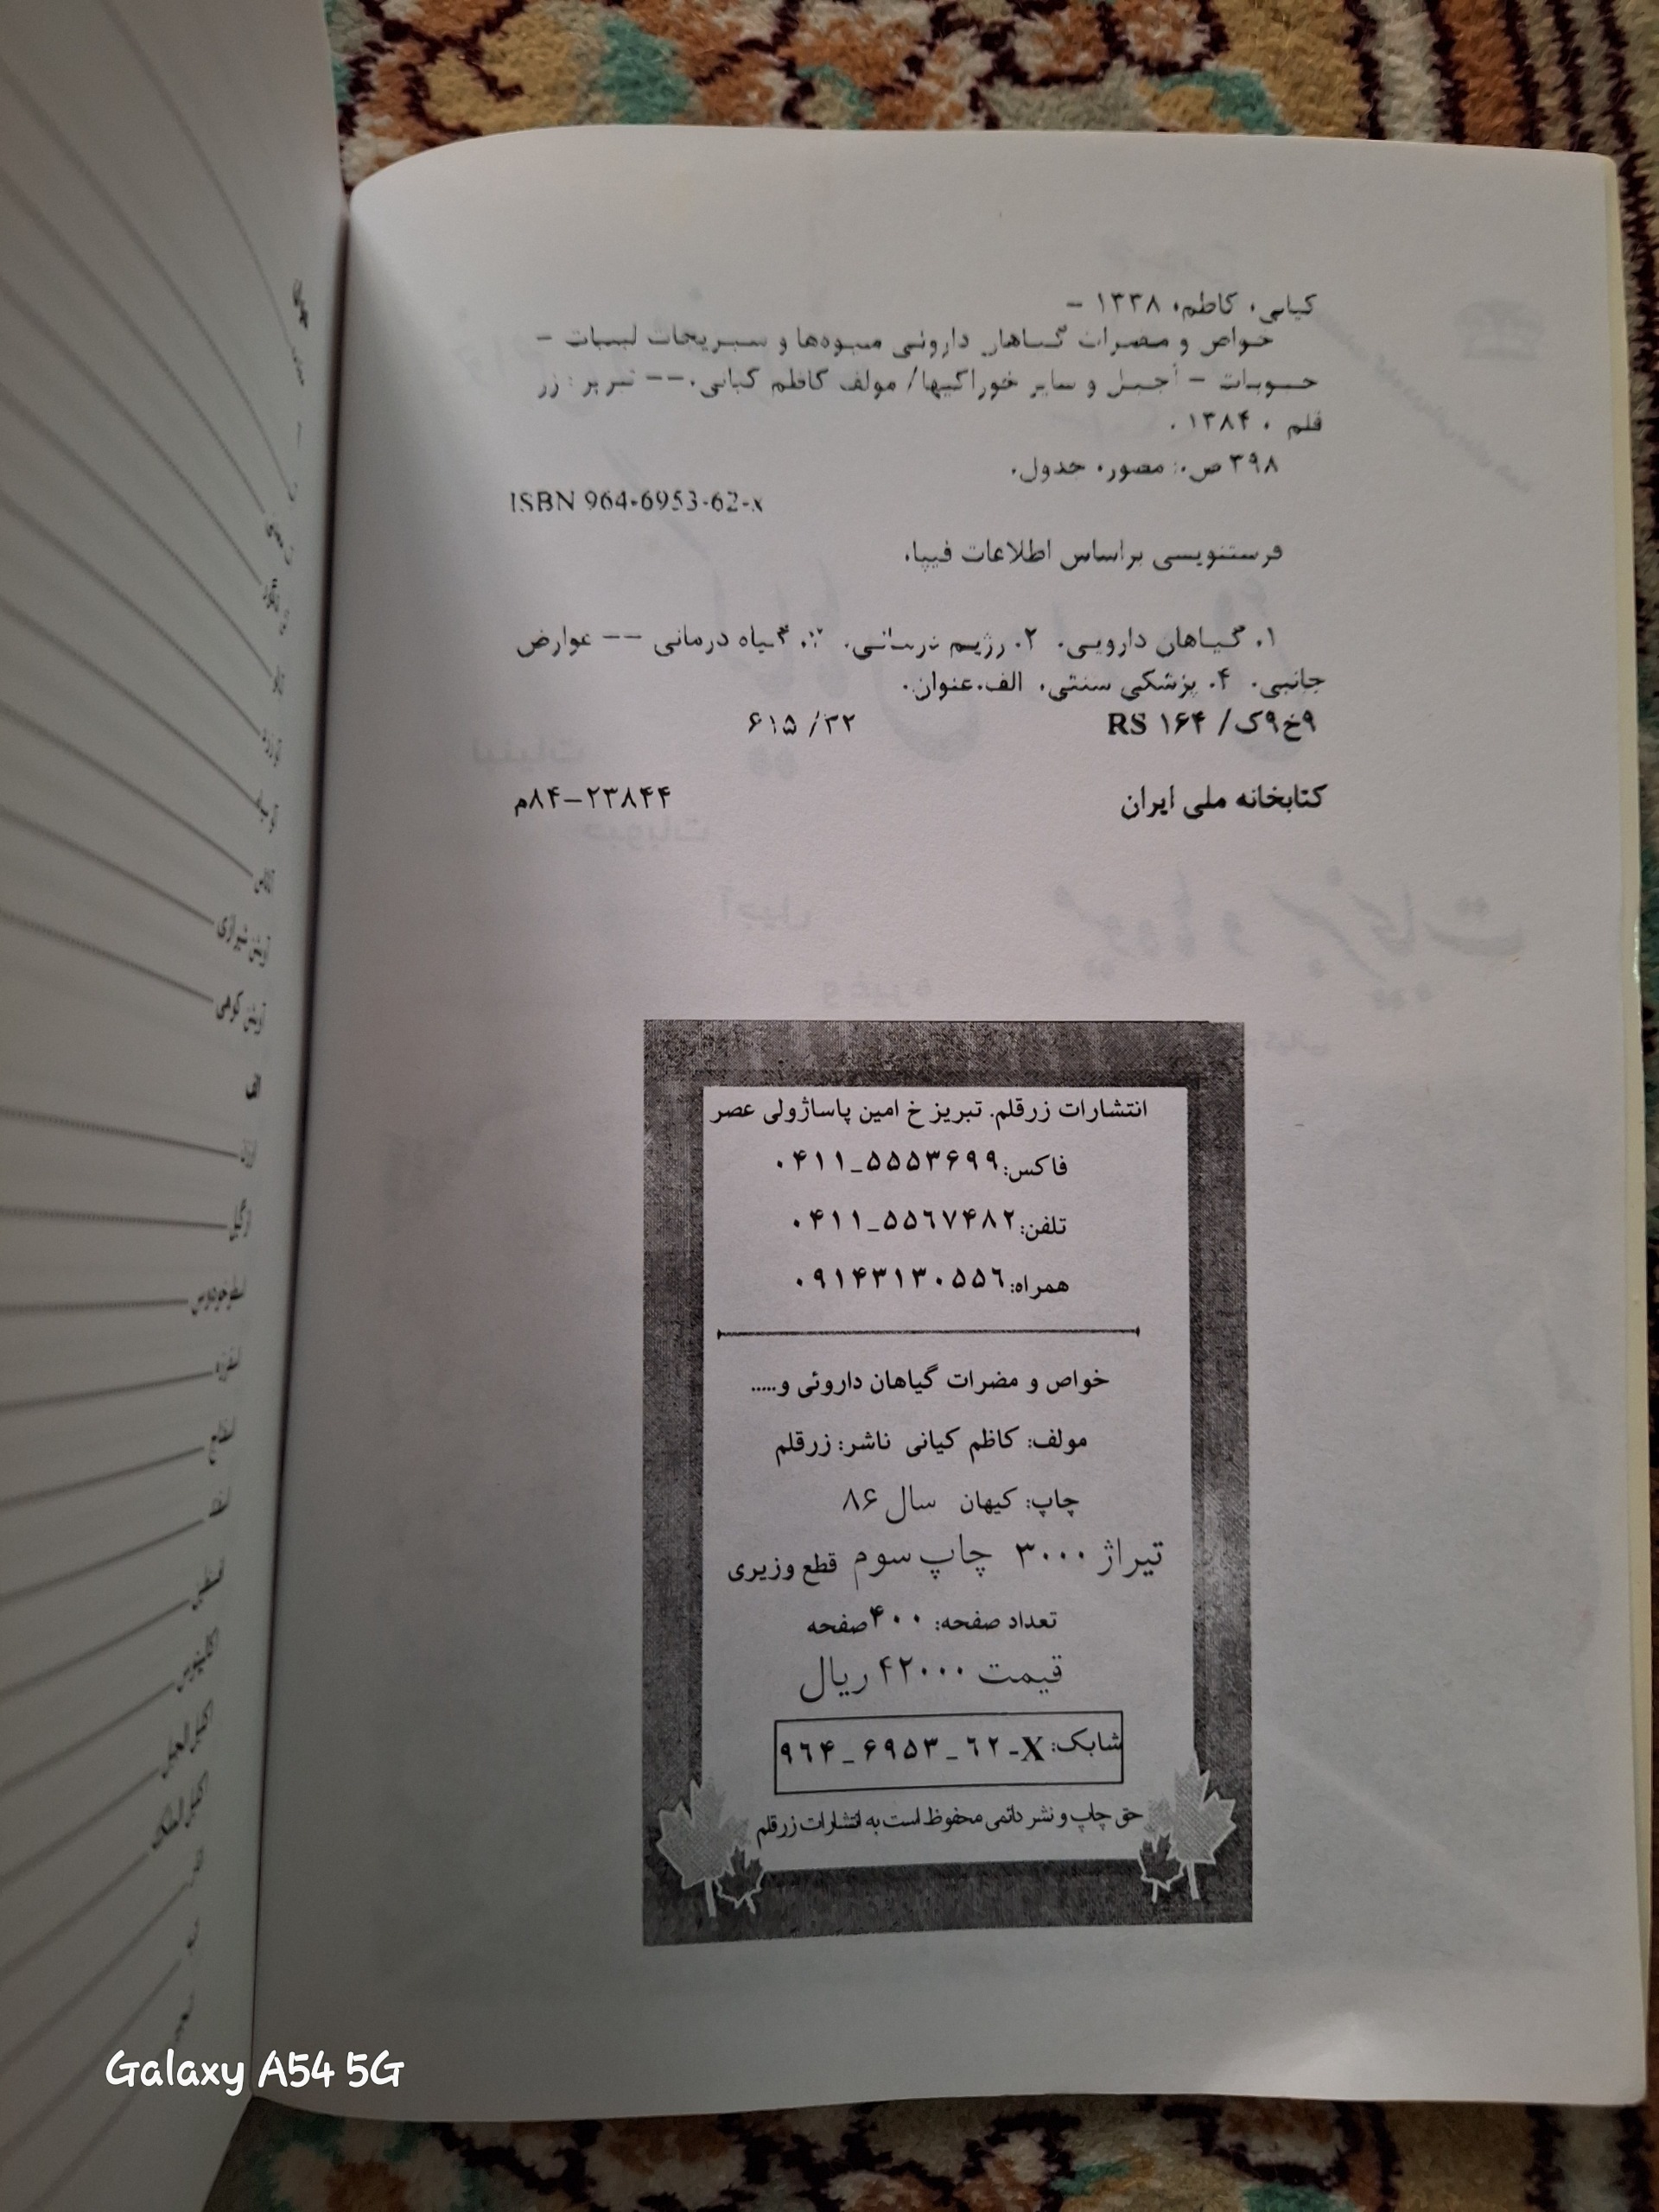 کیانی، کاظم، ۱۳۳۸ -
خواص و مضرات گیاهان داروئی میوه‌ها و سبزیجات لبنیات -
حبوبات - آجیل و سایر خوراکیها/ مولف کاظم کیانی.-- تبریز: زر
قلم ، ۱۳۸۴ .
۳۹۸ ص.: مصور، جدول.
ISBN 964-6953-62-x
فرستنویسی براساس اطلاعات فیپا.
۱. گیاهان دارویی. ۲. رژیم درمانی. ۳. گیاه درمانی -- عوارض
جانبی. ۴. پزشکی سنتی. الف.عنوان.
۹خ۹ک/ ۱۶۴ RS ۶۱۵ /۳۲
کتابخانه ملی ایران ۲۳۸۴۴-۸۴م
انتشارات زرقلم. تبریز خ امین پاساژولی عصر
فاکس: ۰۴۱۱_۵۵۵۳۶۹۹
تلفن: ۰۴۱۱_۵۵۶۷۴۸۲
همراه: ۰۹۱۴۳۱۳۰۵۵۶
خواص و مضرات گیاهان داروئی و.....
مولف: کاظم کیانی ناشر: زرقلم
چاپ: کیهان سال ۸۶
تیراژ ۳۰۰۰ چاپ سوم قطع وزیری
تعداد صفحه: ۴۰۰صفحه
قیمت ۴۲۰۰۰ ریال
شابک: ۹۶۴_۶۹۵۳_۶۲-X
حق چاپ و نشر دائمی محفوظ است به انتشارات زرقلم
آویشن شیرازی
آویشن کوهی
الف
ازگیل
اسطوخودوس
اسفرزه
اسفناج
اکالیپتوس
اکلیل الجبل
اکلیل الملک
Galaxy A54 5G